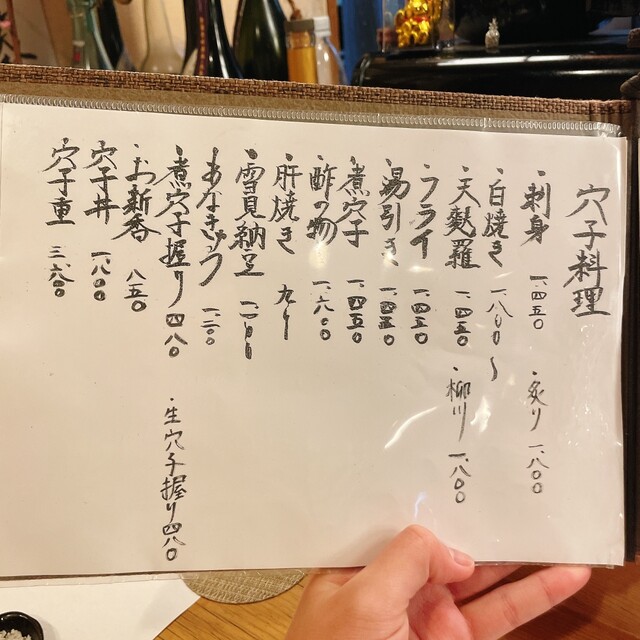 穴子料理
・刺身 一、四五〇 ・炙り 一、八〇〇
・白焼き 一、八〇〇〜
・天麩羅 一、四五〇 ・柳川 一、八〇〇
・フライ 一、四五〇
・湯引き 一、四五〇
・煮穴子 一、四五〇
・酢の物 一、六〇〇
・肝焼き
・雪見納豆
・あなきゅう
・煮穴子握り 四八〇 ・生穴子握り 四八〇
・お新香 八五〇
・穴子丼 一、八〇〇
・穴子重 三、六〇〇